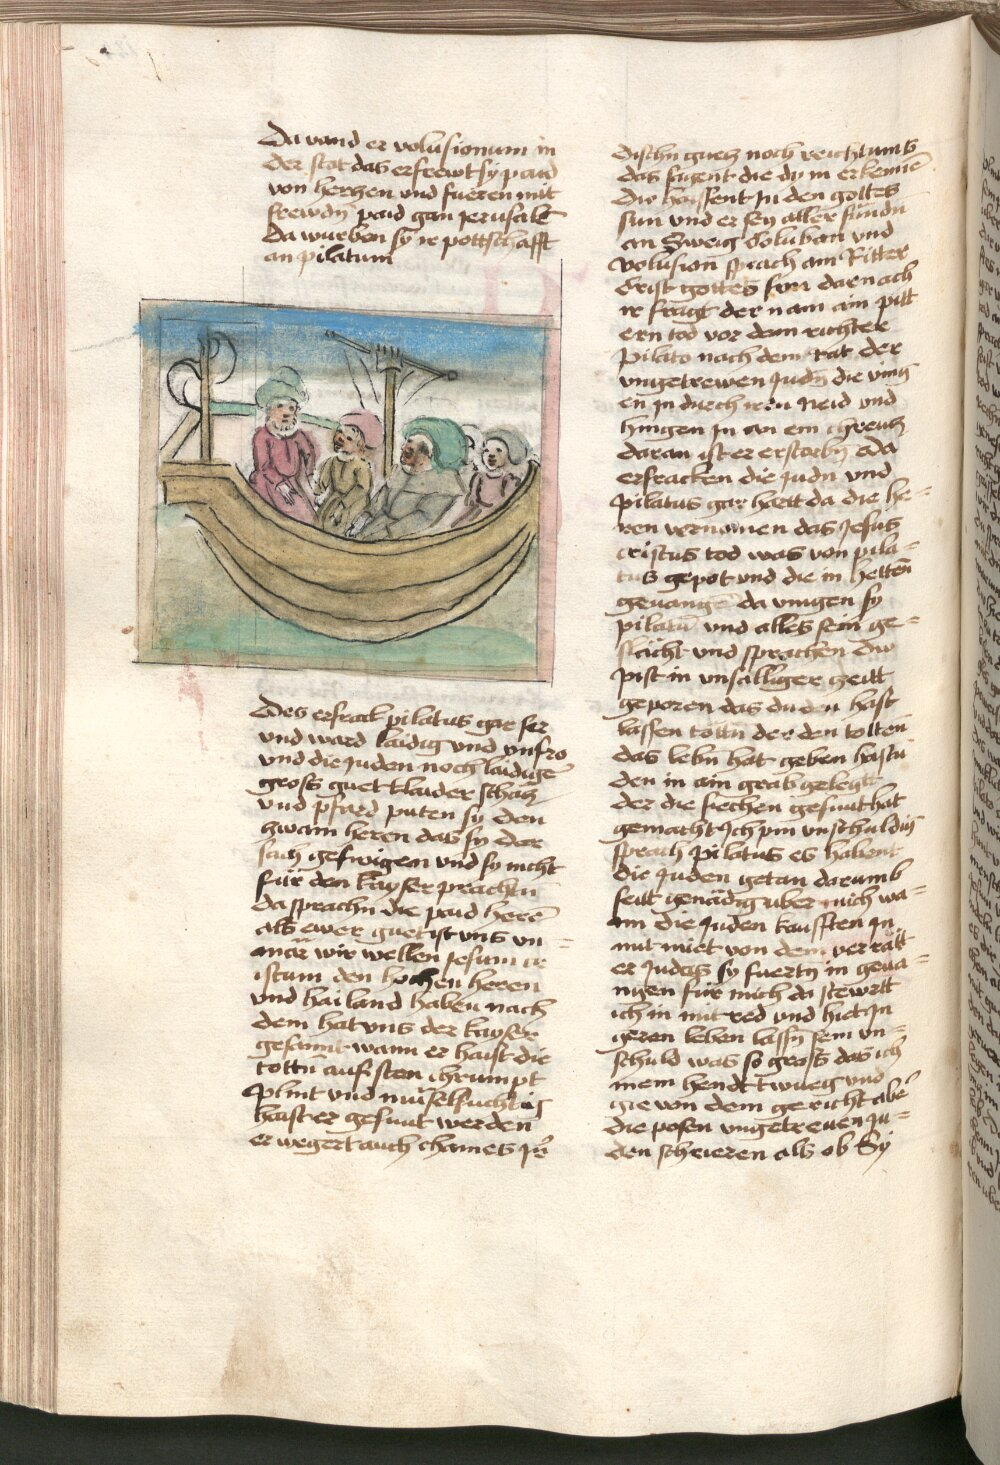 Da vand er volusionum in
der stat das erfrewt sy paid
von herczen und fueren mit
frewdn̄ paid gan Jerusalē
Da wurben sy ir pottschafft
an pilatum
Des erschrack pilatus gar ser
und ward laidig und unfro
und die Juden noch laidiger
gross guet klaider schacz
und pfard puten sy den
zwain heren das sy dar
sach geswigen und sy nicht
für den kayser prachtn̄
Da sprachn̄ die paid herrē
als ewer guet ist uns un
mär wir wellen Jesum cr
istum den hochen heren
und hailand haben nach
dem hat uns der kayser
gesannt wann er haist die
tottn̄ auf sten chrumpt
plint und miselsuchtig
haist er gesunt werden
er wegert auch chaines ir
dischn guetz noch reichtums
das sagent die dy in erkennē
Die haissent in den gottes
sun und er sey aller sünden
an Zweig Columban und
volusion sprach ain Ritter
Crist gottes sun darnach
ir fragt der nam ain pitt
ern tod vor dem richter
pilato nach dem rat der
ungetrewen Judn̄ die ving
en in durch iren neid und
hingen in an ein chreucz
daran ist er erstorbn̄ Da
erschracken die Judn und
pilatus gar hartt da die he=
ren vernamen das Jesus
cristus tod was von pila=
tus gepot und die in hettn̄
gevangē da viengen sy
pilatū und alles sein ge=
slächt und sprachen Du
pist in unsälliger zeitt
geporen das du den hast
lassen tottn̄ der den totten
das lebn̄ hat geben hastu
den in ain grab gelegtt
der die siechen gesunt hat
gemacht Ich pin unschuldig
sprach pilatus es habent
die Juden getan darumb
seitt genädig uber mich wa=
nn die Juden kaufften in
mit miet von dem verratt
er Judas sy fuertn̄ in geva=
ngen für mich da stewrtt
ich in mit red und hiet in
geren leben lassn̄ sein un=
schuld was so gross das ich
mein hendt twueg und
gie von dem gericht aber
die posen ungetreuen Ju=
den schrieren als ob Sy